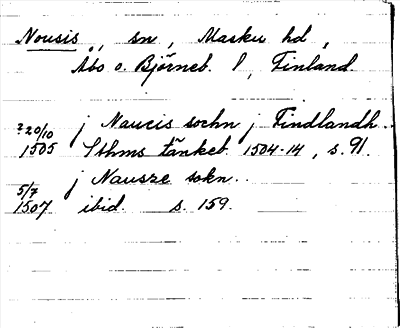 Nousis, sn, Masku hd,
Åbo o. Björneb. l, Finland.
?20/10 j Naucis sochn j Findlandh..
1505 Sthms tänkeb. 1504-14, s. 91.
5/7 j Nausze sokn..
1507 ibid. s. 159.